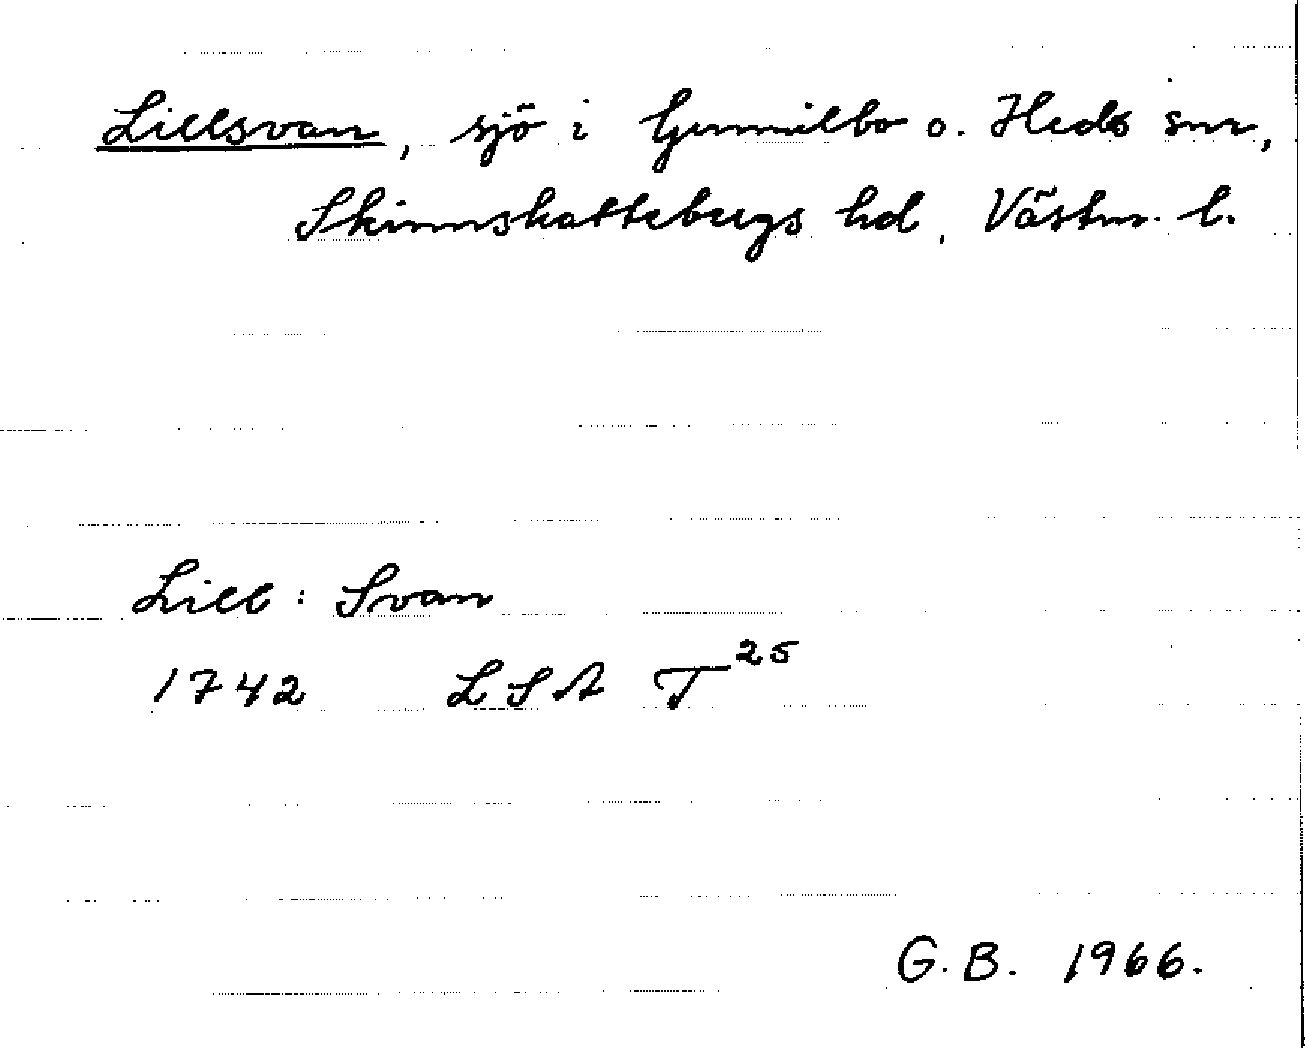 Lillsvan, sjö i Gunnilbo o. Heds snr,
Skinnskattebergs hd, Västm. l.
Lill: Svan
1742 LSA T 25
G.B. 1966.